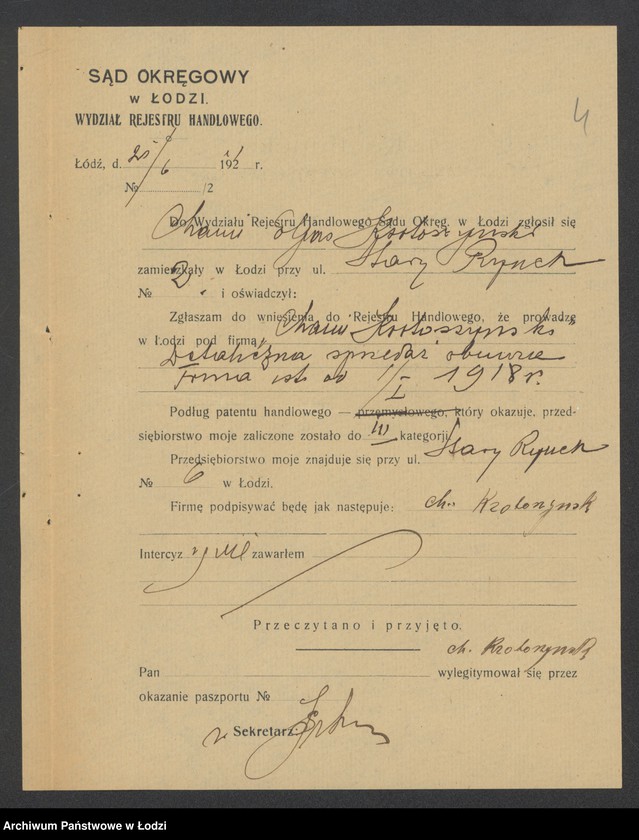 4
SĄD OKRĘGOWY
W ŁODZI.
WYDZIAŁ REJESTRU HANDLOWEGO.
Łódź, d. 25/6 1921 r.
№ /2
Do Wydziału Rejestru Handlowego Sądu Okręg. w Łodzi zgłosił się
Chaim Krotoszyński
zamieszkały w Łodzi przy ul. Stary Rynek
№ 2. i oświadczył:
Zgłaszam do wniesienia do Rejestru Handlowego, że prowadzę
w Łodzi pod firmą „Chaim Krotoszyński"
Detaliczna sprzedaż obuwia
Firma ist. od 1/I 1918 r.
Podług patentu handlowego — przemysłowego, który okazuje, przed-
siębiorstwo moje zaliczone zostało do III kategorji.
Przedsiębiorstwo moje znajduje się przy ul. Stary Rynek
№ 6 w Łodzi.
Firmę podpisywać będę jak następuje: ch. Krotoszynski
Intercyzy nie zawarłem
Przeczytano i przyjęto.
ch. Krotoszynski
Pan wylegitymował się przez
okazanie paszportu №
Sekretarz:
Archiwum Państwowe w Łodzi